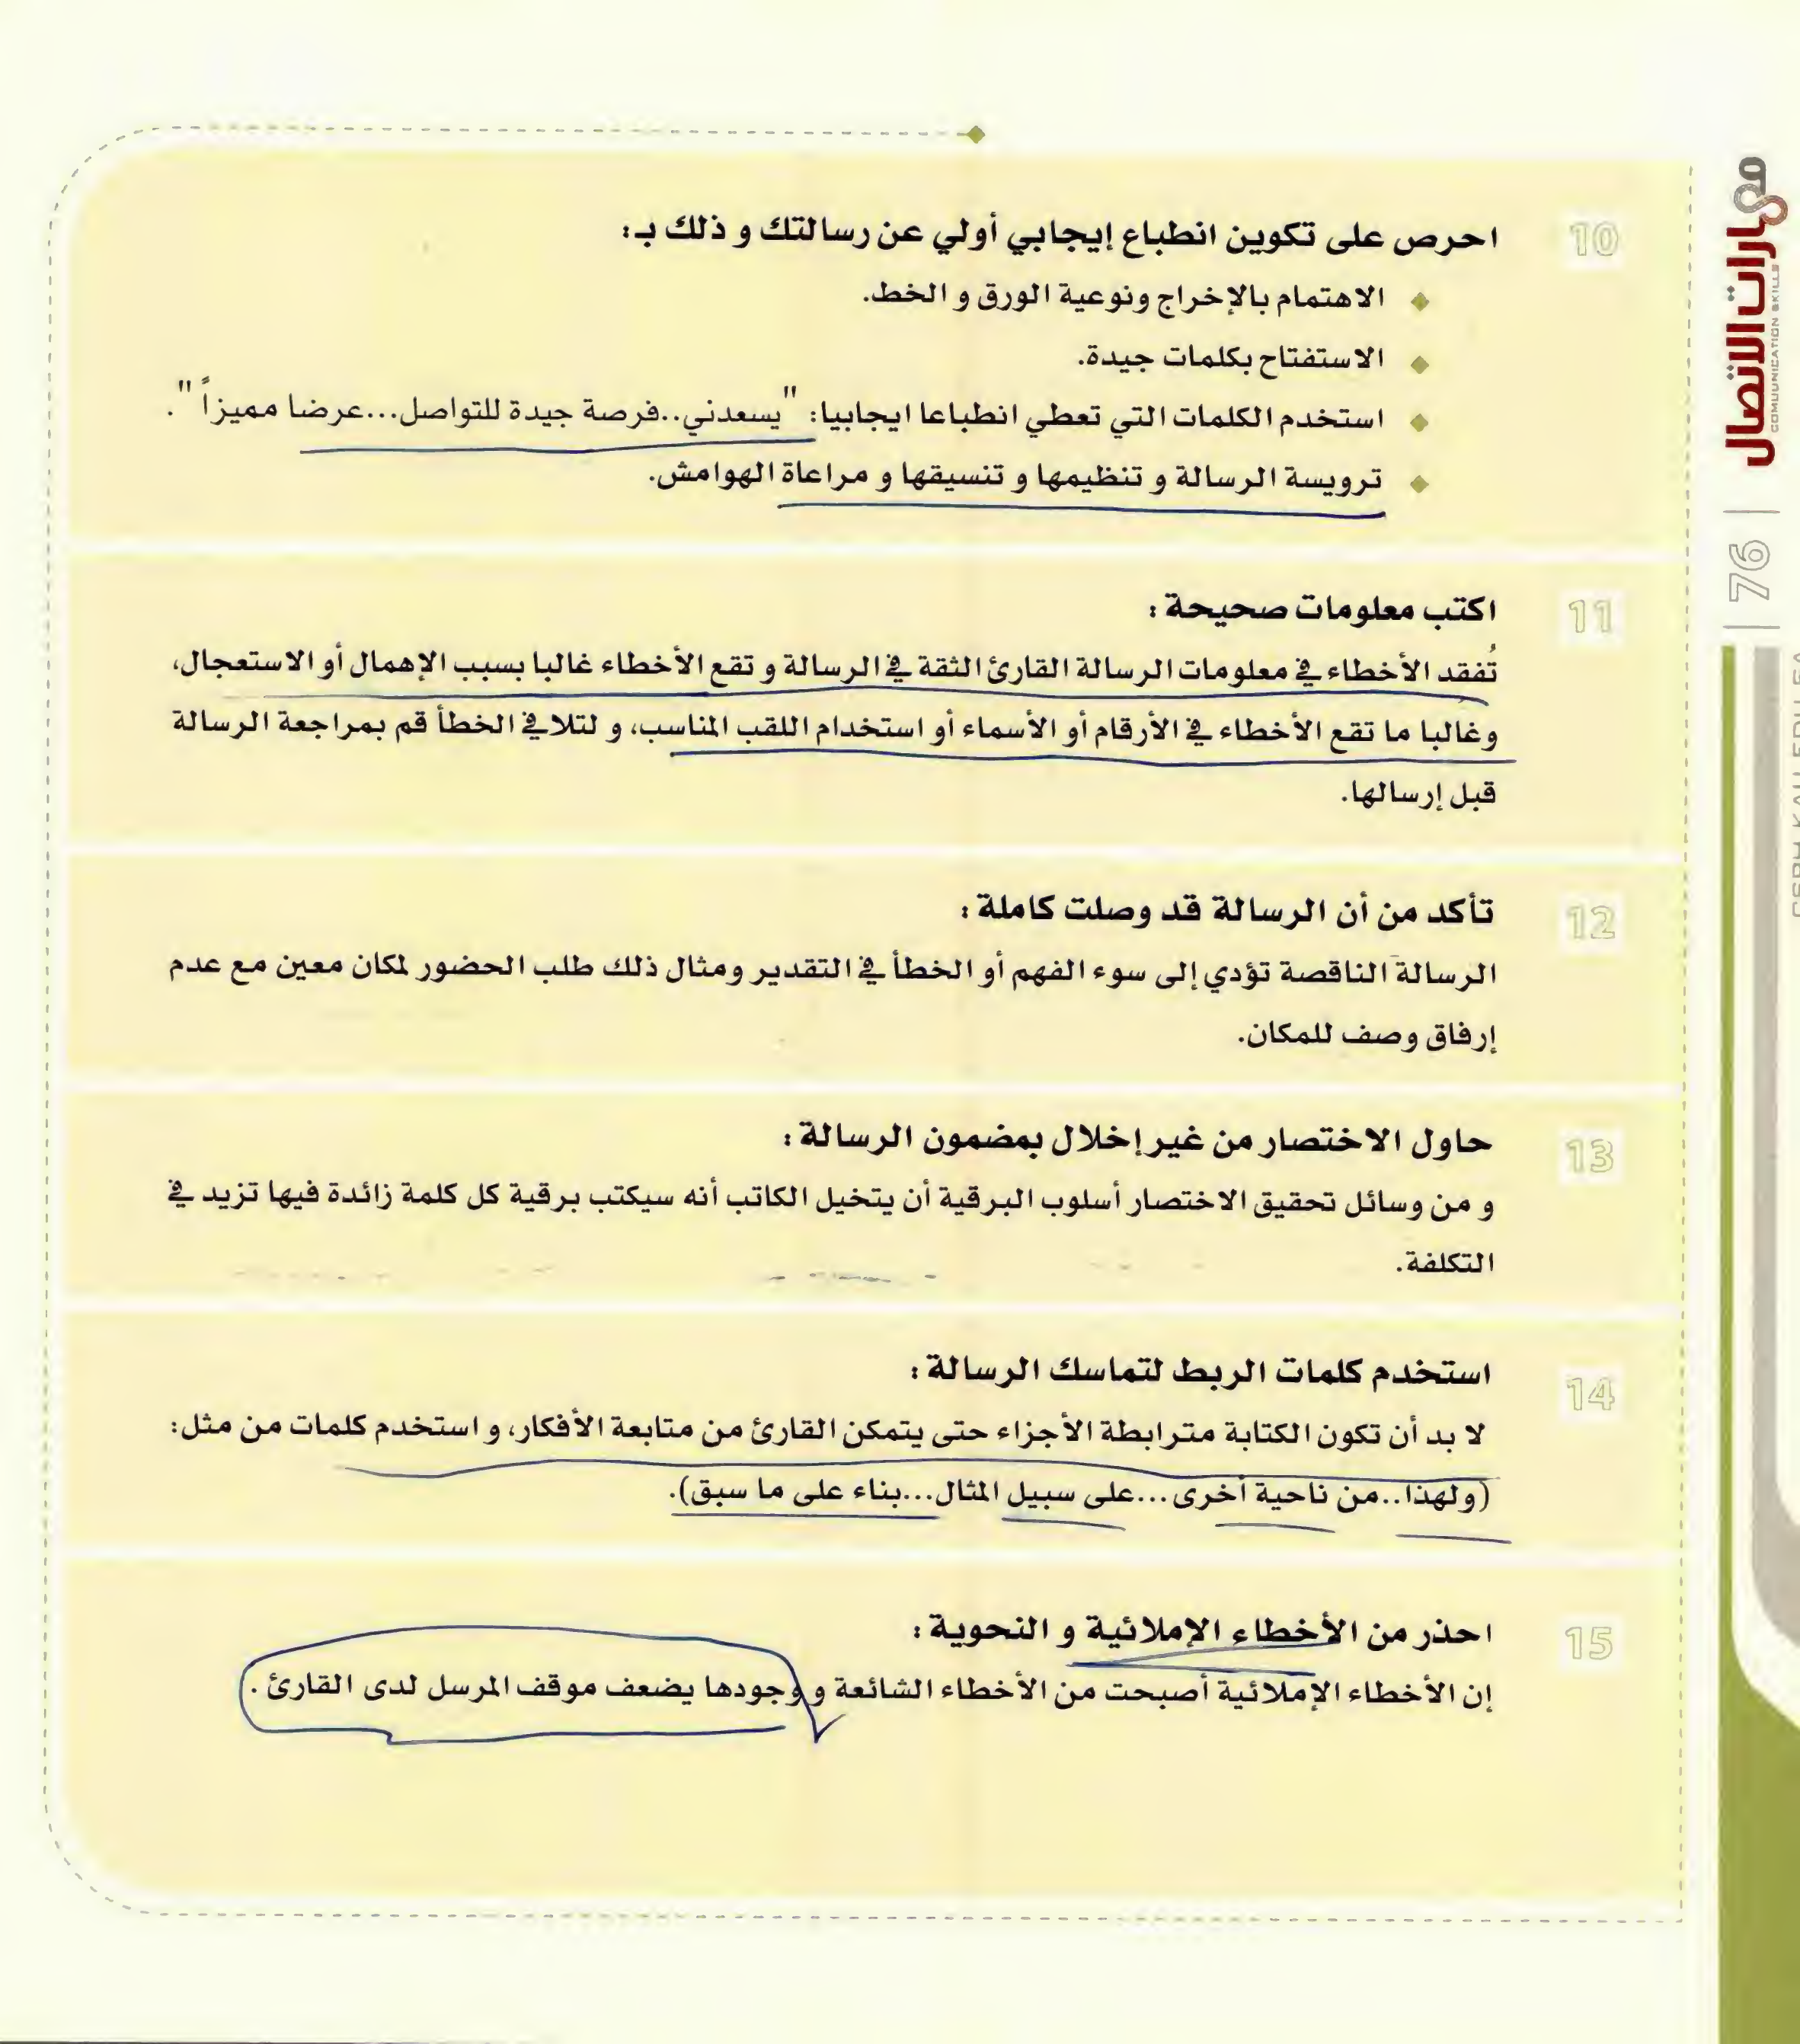 10
احرص على تكوين انطباع إيجابي أولي عن رسالتك و ذلك بـ:
الاهتمام بالإخراج ونوعية الورق و الخط.
الاستفتاح بكلمات جيدة.
استخدم الكلمات التي تعطي انطباعا ايجابيا: "يسعدني..فرصة جيدة للتواصل...عرضا مميزاً".
ترويسة الرسالة و تنظيمها و تنسيقها و مراعاة الهوامش.
11
اكتب معلومات صحيحة :
تُفقد الأخطاء في معلومات الرسالة القارئ الثقة في الرسالة و تقع الأخطاء غالبا بسبب الإهمال أو الاستعجال،
وغالبا ما تقع الأخطاء في الأرقام أو الأسماء أو استخدام اللقب المناسب، و لتلافي الخطأ قم بمراجعة الرسالة
قبل إرسالها.
12
تأكد من أن الرسالة قد وصلت كاملة :
الرسالة الناقصة تؤدي إلى سوء الفهم أو الخطأ في التقدير ومثال ذلك طلب الحضور لمكان معين مع عدم
إرفاق وصف للمكان.
13
حاول الاختصار من غير إخلال بمضمون الرسالة :
و من وسائل تحقيق الاختصار أسلوب البرقية أن يتخيل الكاتب أنه سيكتب برقية كل كلمة زائدة فيها تزيد في
التكلفة.
14
استخدم كلمات الربط لتماسك الرسالة :
لا بد أن تكون الكتابة مترابطة الأجزاء حتى يتمكن القارئ من متابعة الأفكار، و استخدم كلمات من مثل:
(ولهذا..من ناحية أخرى...على سبيل المثال...بناء على ما سبق).
15
احذر من الأخطاء الإملائية و النحوية :
إن الأخطاء الإملائية أصبحت من الأخطاء الشائعة و وجودها يضعف موقف المرسل لدى القارئ .
مهارات الاتصال
COMMUNICATION SKILLS
76